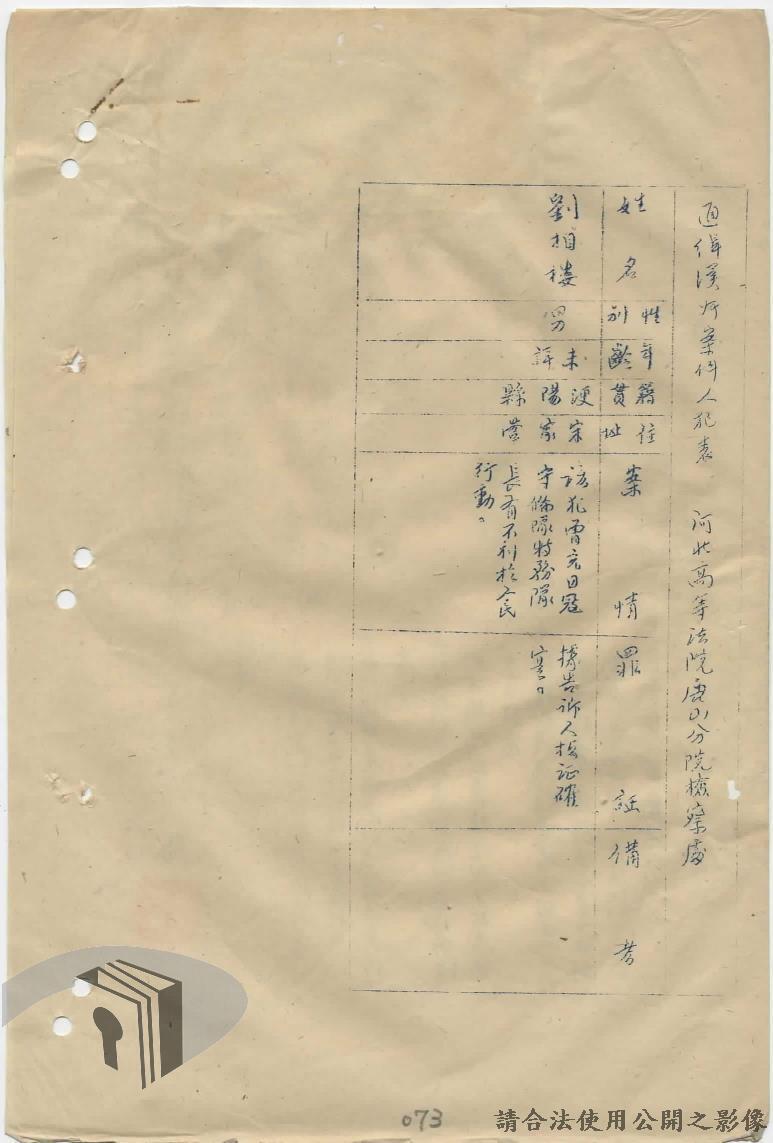 通緝漢奸案件人犯表 河北高等法院唐山分院檢察處
姓名
性別
年齡
籍貫
住址
案情
罪証
備考
劉相樓
男
未詳
浭陽縣
宋家營
該犯曾充日寇
守備隊特務隊
長有不利於人民
行動。
據告訴人指证確
實。
073
請合法使用公開之影像